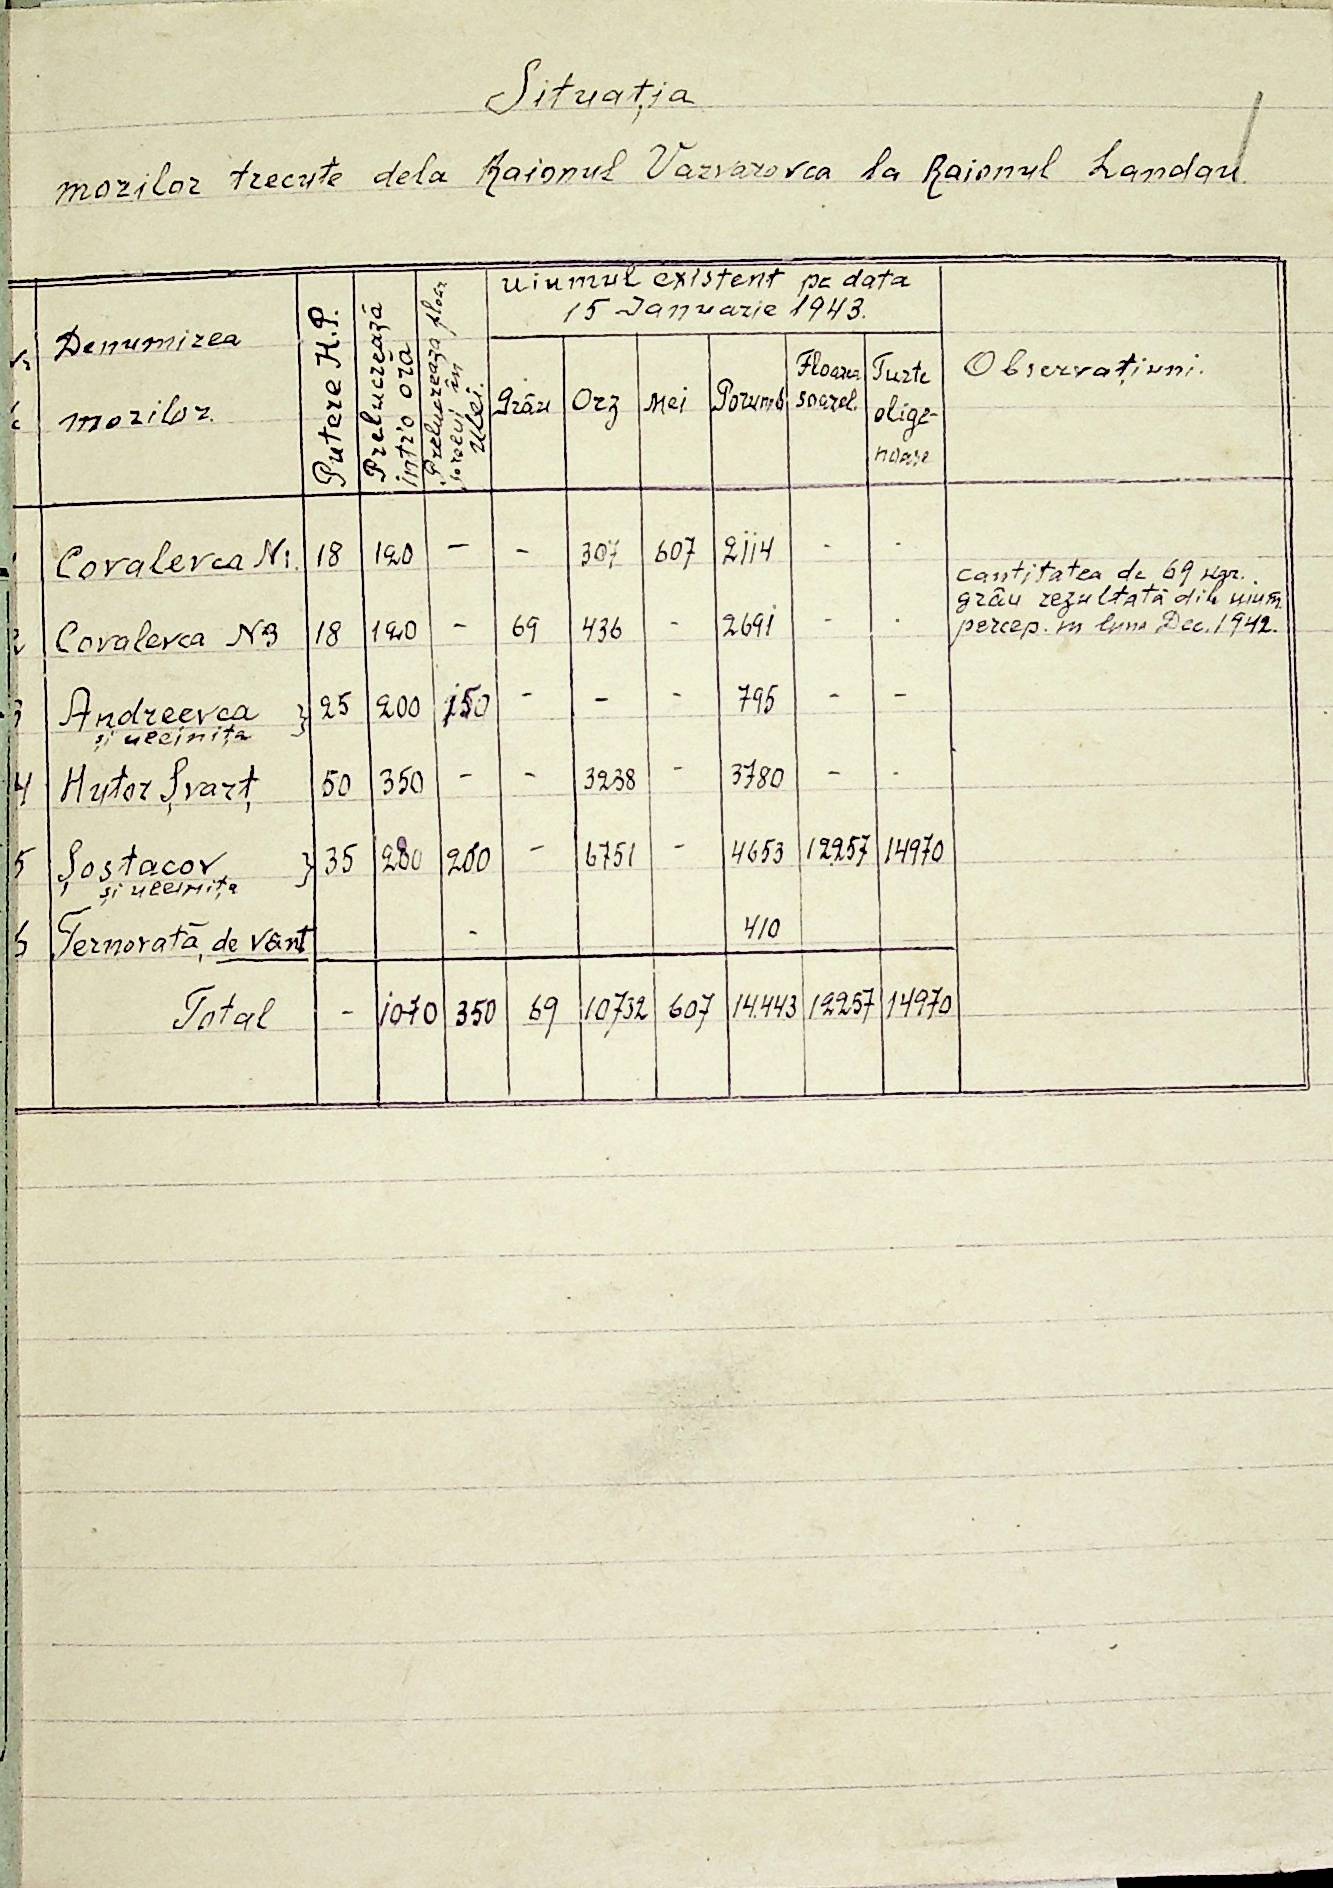 Situația
morilor trecute dela Raionul Varvarovca la Raionul Landau
Denumirea morilor. | Putere H.P. | Prelucrează într'o oră | Prelucrează floar. soarelui în ulei. | Uiumul existent pe data 15 Ianuarie 1943. | Observațiuni.
Grâu | Orz | Mei | Porumb | Floarea soarel. | Turte olige-noase
Covalevca N1. | 18 | 120 | – | – | 307 | 607 | 2114 | - | -
2 | Covalevca N3 | 18 | 120 | – | 69 | 436 | - | 2691 | - | - | cantitatea de 69 kgr. grâu rezultată din uium percep. în luna Dec. 1942.
3 | Andreevca și uleinița } | 25 | 200 | 150 | - | – | - | 795 | – | –
4 | Hutor Șvarț | 50 | 350 | – | – | 3238 | - | 3780 | – | -
5 | Șostacov și uleinița } | 35 | 280 | 200 | - | 6751 | - | 4653 | 12257 | 14970
6 | Ternovată, de vânt | - | 410
Total | – | 1070 | 350 | 69 | 10732 | 607 | 14.443 | 12257 | 14970